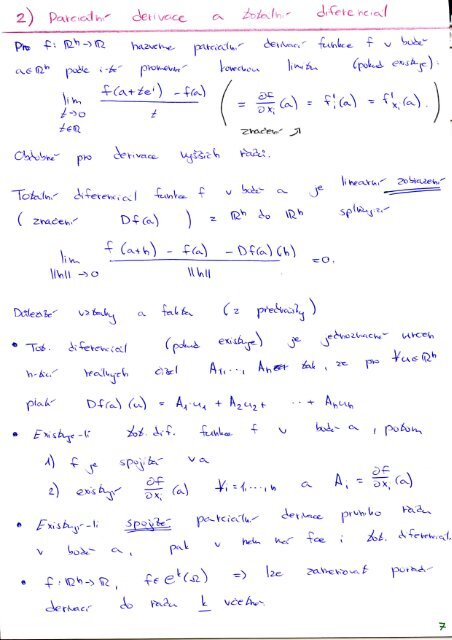 2) Parciální derivace a totální diferenciál
Pro f: ℝⁿ→ℝ nazveme parciální derivací funkce f v bodě
a∈ℝⁿ podle i-té proměnné konečnou limitu (pokud existuje):
lim_{t→0, t∈ℝ} (f(a+teⁱ) - f(a)) / t ( = ∂f/∂xᵢ (a) = f'ᵢ(a) = f'ₓᵢ(a). )
značení ↗
Obdobně pro derivace vyšších řádů.
Totální diferenciál funkce f v bodě a je lineární zobrazení
( značení Df(a) ) z ℝⁿ do ℝⁿ splňující
lim_{||h||→0} (f(a+h) - f(a) - Df(a)(h)) / ||h|| = 0.
Důležité vztahy a fakta (z přednášky)
• Tot. diferenciál (pokud existuje) je jednoznačně určen
n-ticí reálných čísel A₁,..., Aₙ tak, že pro ∀u∈ℝⁿ
platí Df(a)(u) = A₁·u₁ + A₂u₂+ ··+ Aₙuₙ
• Existuje-li tot. dif. funkce f v bodě a, potom
1) f je spojitá v a
2) existují ∂f/∂xᵢ (a) ∀i=1,...,n a Aᵢ = ∂f/∂xᵢ (a)
• Existují-li spojité parciální derivace prvního řádu
v bodě a, pak v něm má fce i tot. diferenciál.
• f: ℝⁿ→ℝ, f∈ Cᵏ(Ω) => lze zaměňovat pořadí
derivací do řádu k včetně.
7